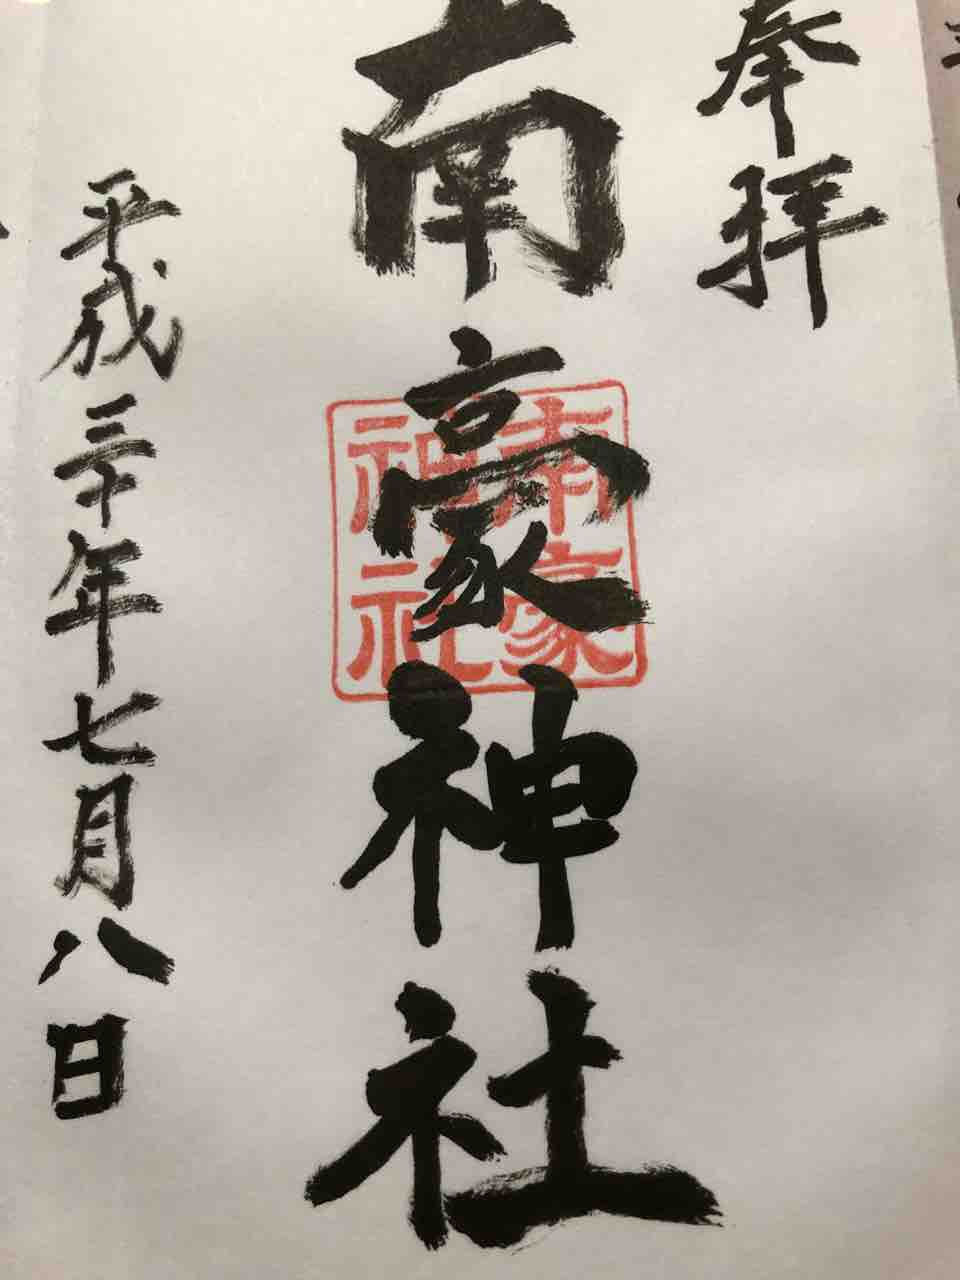 奉拝
南豪神社
南豪
神社
平成三十年七月八日